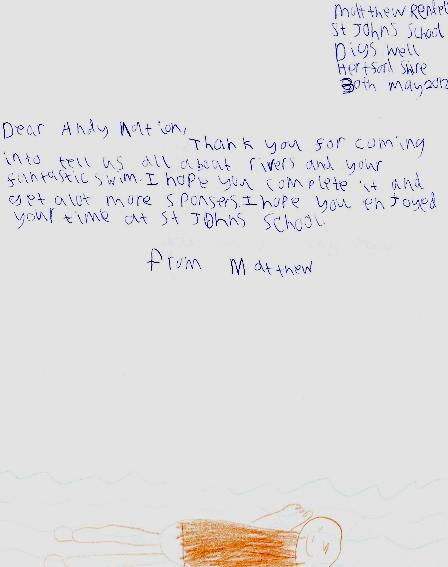 Matthew
St Johns School
Digs well
Hertford Shire
30th may 2012
Dear Andy Nation,
Thank you for coming
into tell us all about rivers and your
fantastic swim. I hope you complete it and
get alot more sponsers. I hope you enjoyed
your time at St Johns School.
from Matthew